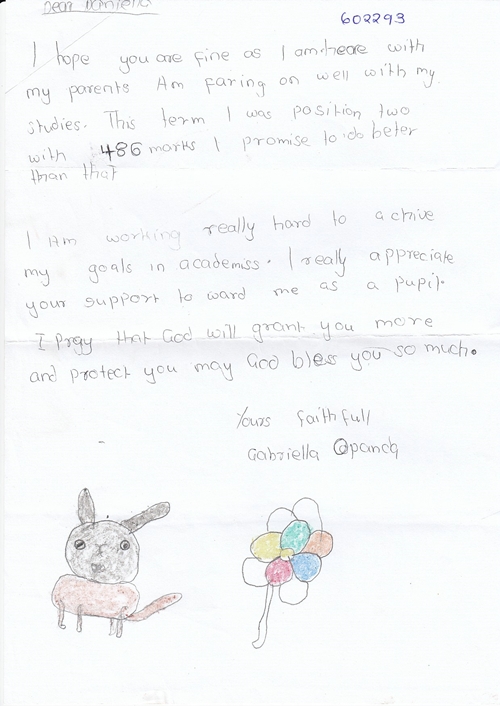 Dear Daniella
602293
I hope you are fine as I am here with
my parents Am faring on well with my
studies. This term I was position two
with 486 marks I promise to do beter
than that
I Am working really hard to achive
my goals in academiss. I really appreciate
your support to ward me as a pupil.
I pray that God will grant you more
and protect you may God bless you so much.
Yours faithfull
Gabriella Opancq